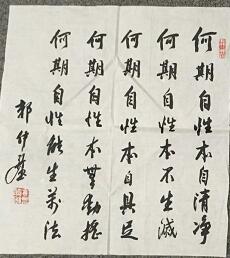 何期自性本自清净
何期自性本不生滅
何期自性本自具足
何期自性本無動搖
何期自性能生萬法
郭伊